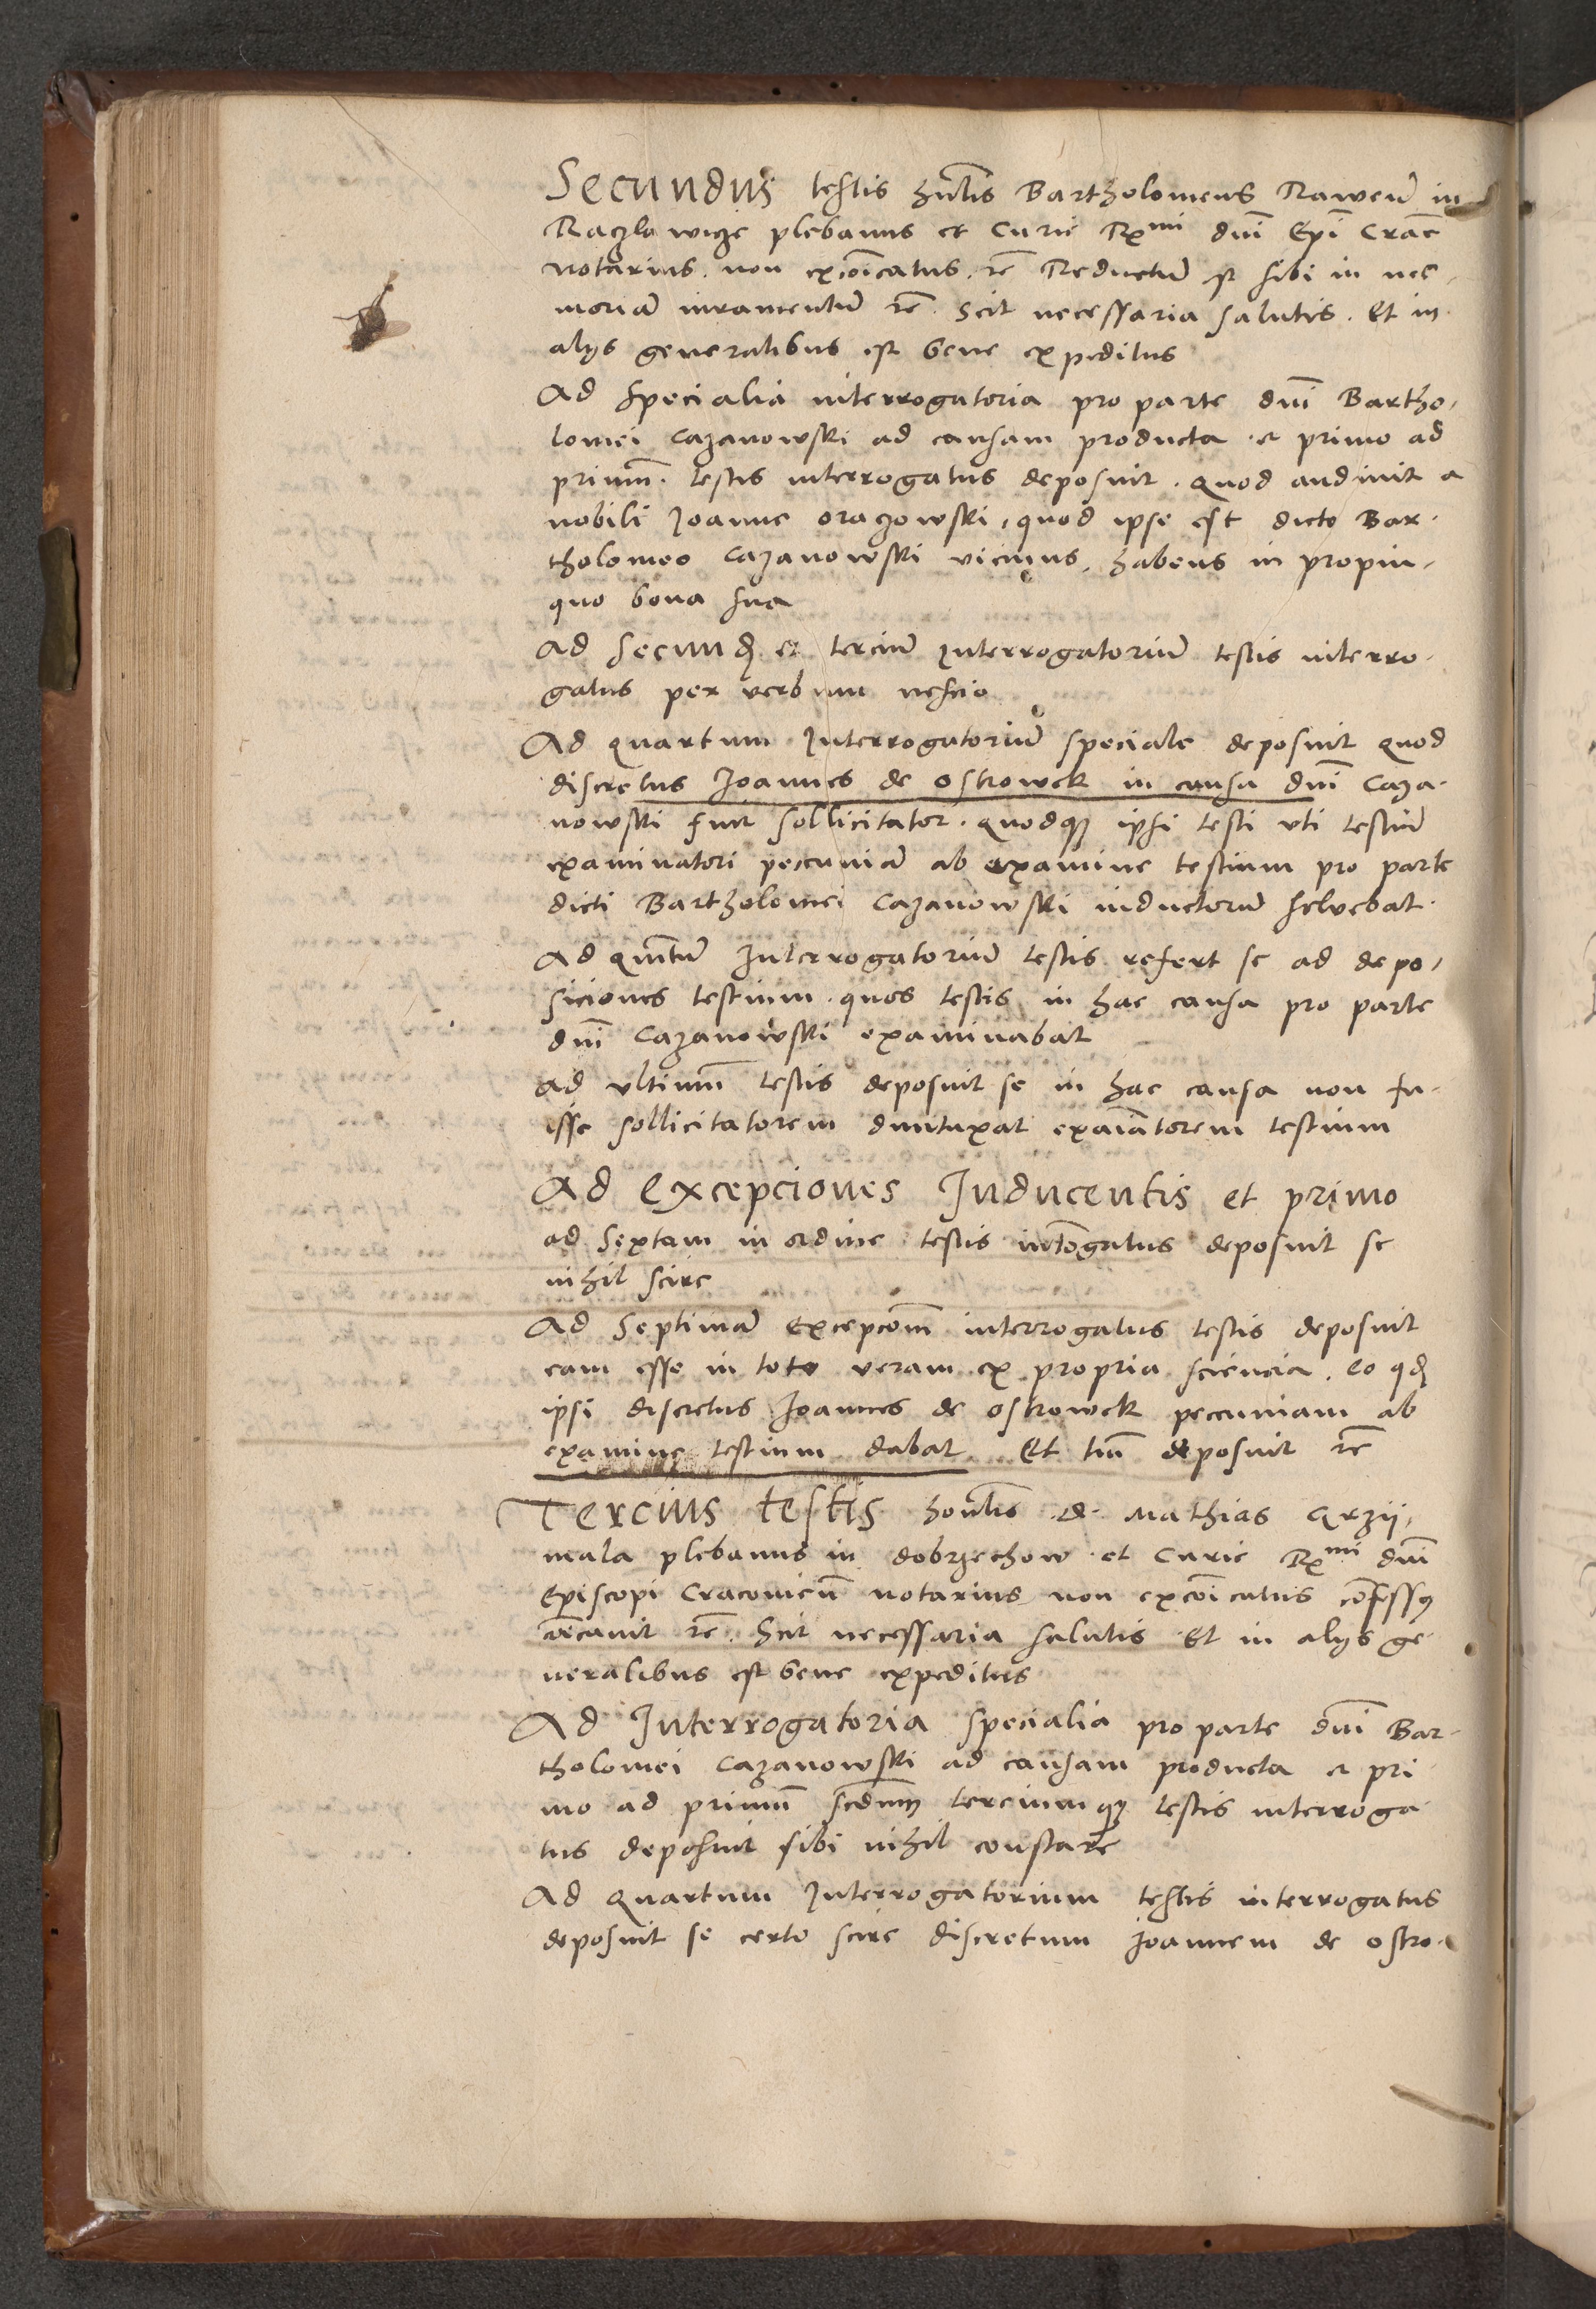 Secundus testis hnlis Bartholomeus Raweñ in
Raczlawicze plebanus et Curie Rxmi dni Epi Crac
notarius. non excoicatus. rc Reductu est sibi in me-
moria iuramentu rc. Scit necessaria salutis. Et in
alys generalibus est bene expeditus
Ad specialia interrogatoria pro parte dni Bartho-
lomei Cazanowski ad causam producta et primo ad
primum. testis interrogatus deposuit. quod audiuit a
nobili Joanne Oraczowski, quod ipse est dicto Bar-
tholomeo Cazanowski vicinus, habens in propin-
quo bona sua
Ad Secund et terciu Interrogatoriu testis interro-
gatus per verbum nescio
Ad quartum Interrogatoriu speciale deposuit quod
discretus Joannes de Ostrowek in causa dni Caza-
nowski fuit sollicitator. quodq ipsi testi vti testiu
examinatori pecunia ab examine testium pro parte
dicti Bartholomei Cazanowski inductoru solvebat.
Ad quintu Interrogatoriu testis refert se ad depo-
siciones testium. quos testis in hac causa pro parte
dni Cazanowski examinabat
Ad vltimu testis deposuit se in hac causa non fu-
isse sollicitatorem duntaxat exaiatorem testium
Ad Excepciones Inducentis et primo
ad Sextam in ordine testis introgatus deposuit se
nihil scire
Ad Septima Excepcom interrogatus testis deposuit
eam esse in toto veram ex propria sciencia. eo qd
ipsi discretus Joannes de Ostrowek pecuniam ab
examine testium dabat. Et tm deposuit rc
Tercius testis honlis d. Mathias Grzy-
mala plebanus in dobrzechow et Curie Rxmi dni
Episcopi Cracovien notarius non excoicatus confessus
rc. Scit necessaria salutis Et in alys ge-
neralibus est bene expeditus
Ad Interrogatoria specialia pro parte dni Bar-
tholomei Cazanowski ad causam producta et pri-
mo ad primu scdum terciumq testis interroga-
tus deposuit sibi nihil constare
Ad Quartum Interrogatorium testis interrogatus
deposuit se certo scire discretum Joannem de Ostro-